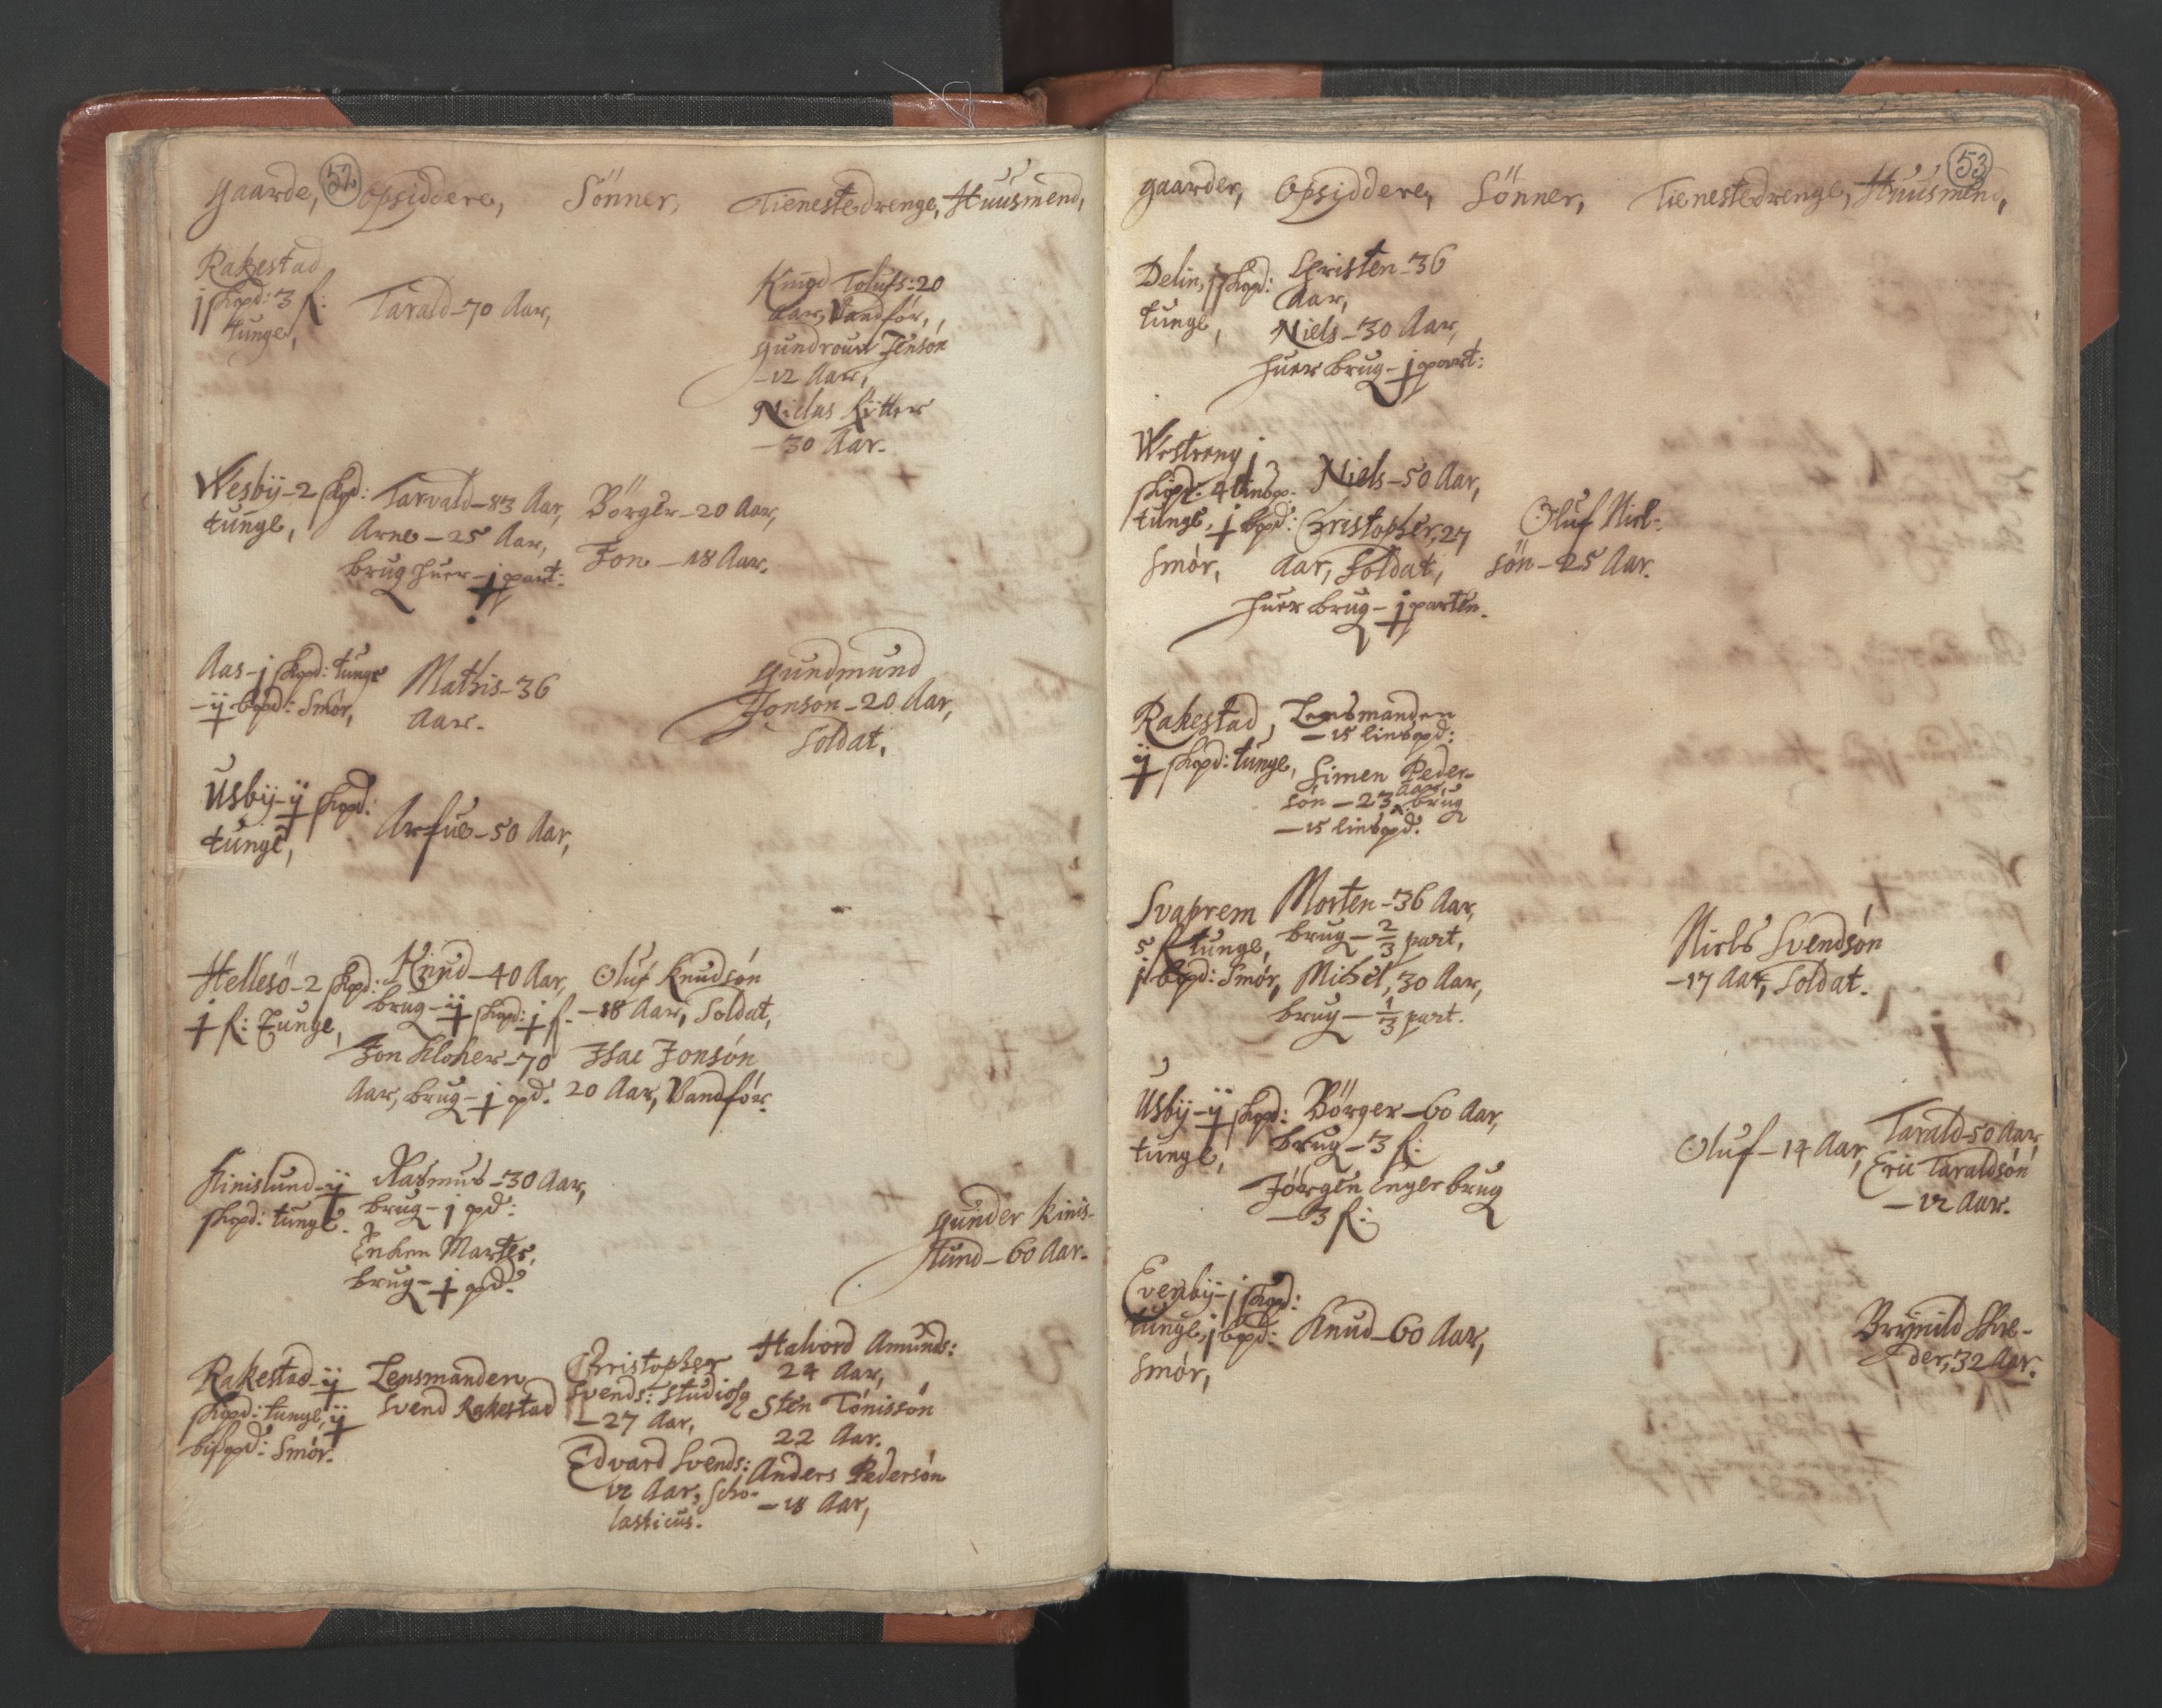 52
gaarde, Opsiddere, Sönner, Tienestedrenge, Huusmend,
Rakestad
j skpd: 3 f: Tarald - 70 Aar,
tunge,
Knud Tolufs: 20
Aar, Vandför,
gundrour Jensön
- 12 Aar,
Niclas Rytter
- 30 Aar.
Wesbÿ - 2 skpd: Tarvald - 83 Aar, Börger - 20 Aar,
tunge, Arne - 25 Aar, Jon - 18 Aar.
brug huer - j part:
Aas - j skpd: tunge Mathis - 36
- ij bpd: Smör, Aar.
gundmund
Jonsön - 20 Aar,
Soldat,
Usbÿ - ij skpd:
tunge, Arfue - 50 Aar,
Hellesö - 2 skpd: Knud - 40 Aar, Oluf Knudsön
j f: Tunge, brug - ij skpd: j f. - 18 Aar, Soldat,
Jon Kloker - 70 Isac Jonsön
Aar, brug - j pd. 20 Aar, Vandför.
Kinislund - ij Rasmus - 30 Aar,
skpd: tunge. brug - j pd:
Enken Marte,
brug - j pd.
gunder Kinis-
lund - 60 Aar.
Rakestad - ij Lensmanden Christopher Halvord Amunds:
skpd: tunge, ij Svend Rakestad Svends: Studiosq 24 Aar,
bispd: Smör. - 27 Aar, Sten Tönissön
22 Aar.
Edvard Svends: Anders Pedersön
12 Aar, Scho- - 18 Aar,
lasticus.
53
gaarder, Opsiddere, Sönner, Tienestedrenge, Huusmend,
Delin, j skpd: Christen - 36
tunge, Aar,
Niels - 30 Aar,
huer brug - j part:
Westreng j
skpd. 4 linsp. Niels - 50 Aar,
tunge, j bpd: Christopher, 27 Oluf Niel-
Smör, Aar, Soldat, sön - 25 Aar.
huer brug - j parten.
Rakestad, Lensmanden
- 15 linspd:
ij skpd: tunge, Simen Peder-
sön - 23 Aar, brug
- 15 linspd.
Svaprem Morten - 36 Aar,
5 f tunge, brug - 2/3 part,
j bpd: Smör, Michel, 30 Aar,
brug - 1/3 part.
Niels Svendsön
- 17 Aar, Soldat.
Usbÿ - ij skpd: Börger - 60 Aar,
tunge, brug - 3 f:
Jörgen Enger brug
- 3 f:
Oluf - 14 Aar, Tarald - 50 Aar,
Eric Taraldsön
- 12 Aar.
Evenbÿ - j skpd:
tunge, j bpd: Knud - 60 Aar,
Smör,
Brÿnild Skre-
der, 32 Aar.